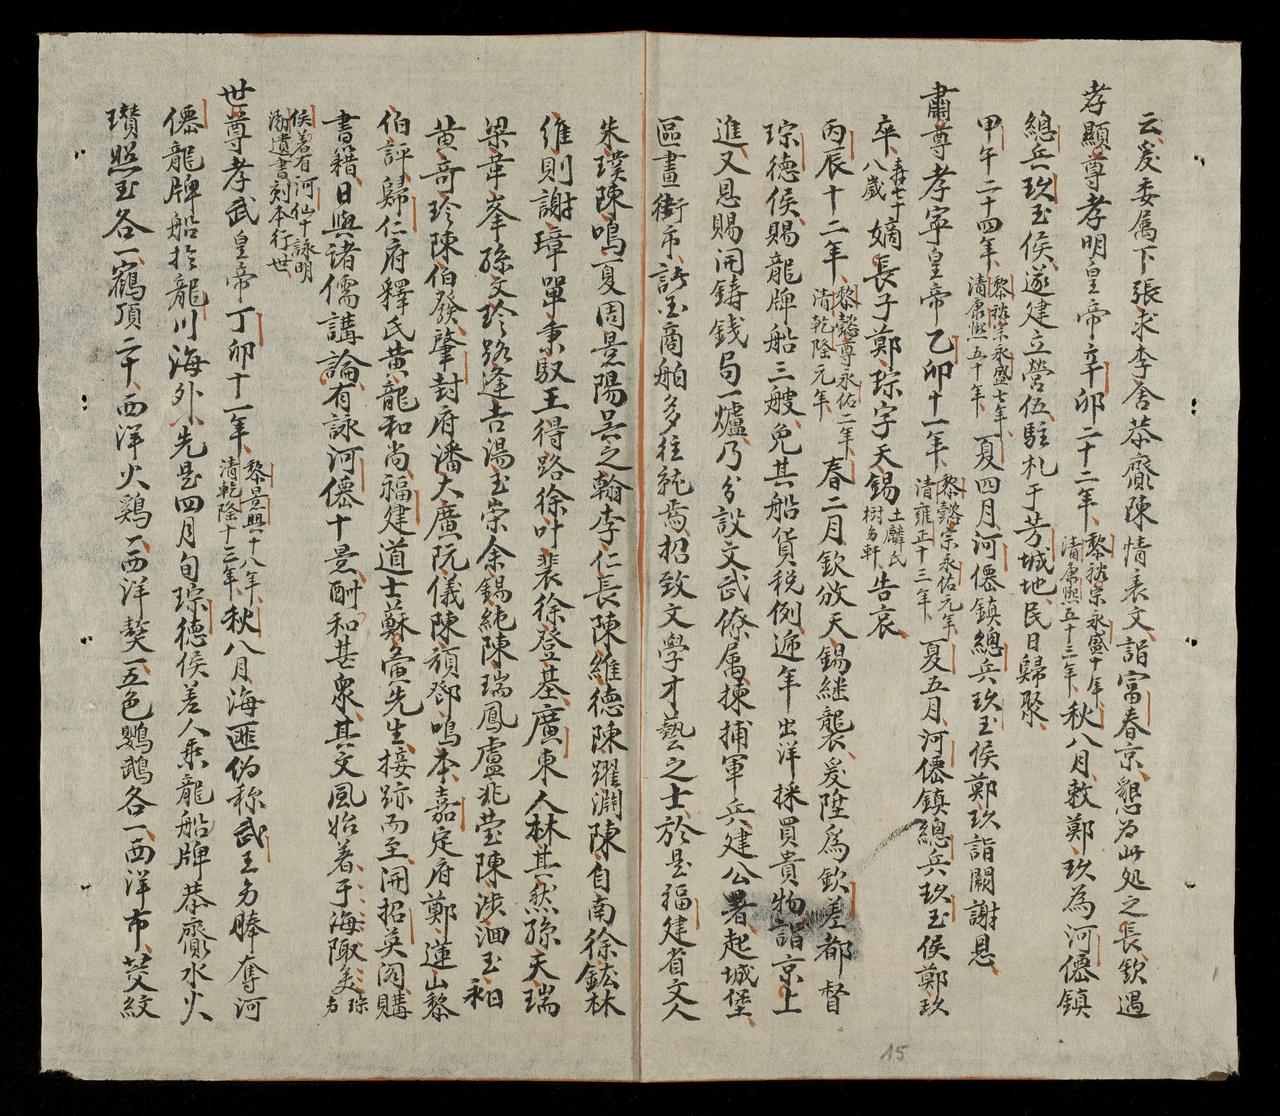 云爰委属下張求李舍恭齎陳情表文詣富春京懇为此処之長欽遇
孝顯尊孝明皇帝辛卯二十二年黎裕宗永盛十年清康熙五十三年秋八月敕鄭玖為河僊鎮
總兵玖玉侯遂建立營伍駐札于芳城地民日歸聚
甲午二十四年黎裕宗永盛七年清康熙五十年夏四月河僊鎮總兵玖玉侯鄭玖詣闕謝恩
肅尊孝寧皇帝乙卯十一年黎懿宗永佑元年清雍正十三年夏五月河僊鎮總兵玖玉侯鄭玖
卒壽七十八歲嫡長子鄭琮字天錫士麟氏樹多軒告哀
丙辰十二年黎懿尊永佑二年清乾隆元年春二月欽攽天錫継襲爰陞爲欽差都督
琮德侯賜龍牌船三艘免其船貨税例遞年出洋採買貴物詣京上
進又恩賜開鑄銭局一爐乃分設文武僚属揀捕軍兵建公署起城堡
區畫街市諸國商舶多往統焉招致文學才藝之士於是福建省文人
朱璞陳鳴夏周景陽吳之翰李仁長陳維德陳躍淵陳自南徐鉉林
維則謝璋單秉馭王得路徐叶裴徐登基廣東人林其然孫天瑞
梁華峯孫文珍路逢吉湯玉崇余錫純陳瑞鳳盧兆瑩陳涉洄玉昶
黄奇珍陳伯發肇封府潘大廣阮儀陳頑鄧鳴本嘉定府鄭蓮山黎
伯評歸仁府釋氏黄龍和尚福建道士蘇寅先生接跡而至開招英閣購
書籍日與諸儒講論有詠河僊十景酬和甚衆其文風始着于海陬矣琮多
侯着有河仙十詠明渤遺書刻本行世
世尊孝武皇帝丁卯十一年黎景興十八年清乾隆十三年秋八月海匪伪称武王多胨奪河
僊龍牌船扵龍川海外先是四月旬琮德侯差人乘龍船牌恭齎水火
瓚照玉各一鶴頂二十西洋火鷄一西洋獒一五色鸚鵡各一西洋布茭紋